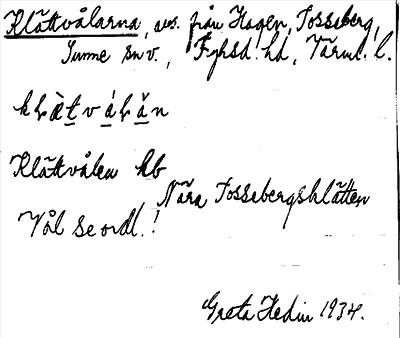 Klättvålarna, avs. från Hagen, Tosseberg,
Sunne sn v., Fryksd. hd, Värml. l.
Klättvålen hb
Nära Tossebergsklätten
Vål se ordl.!
Greta Hedin 1934.